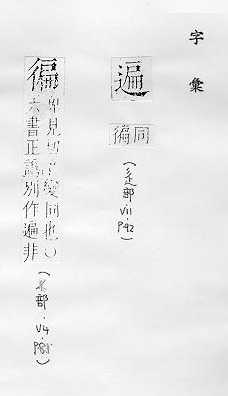 字彙
遍
同徧
(辵部·VII·P42)
徧
卑見切音變周也○
六書正譌別作遍非
(彳部·V4·P85)